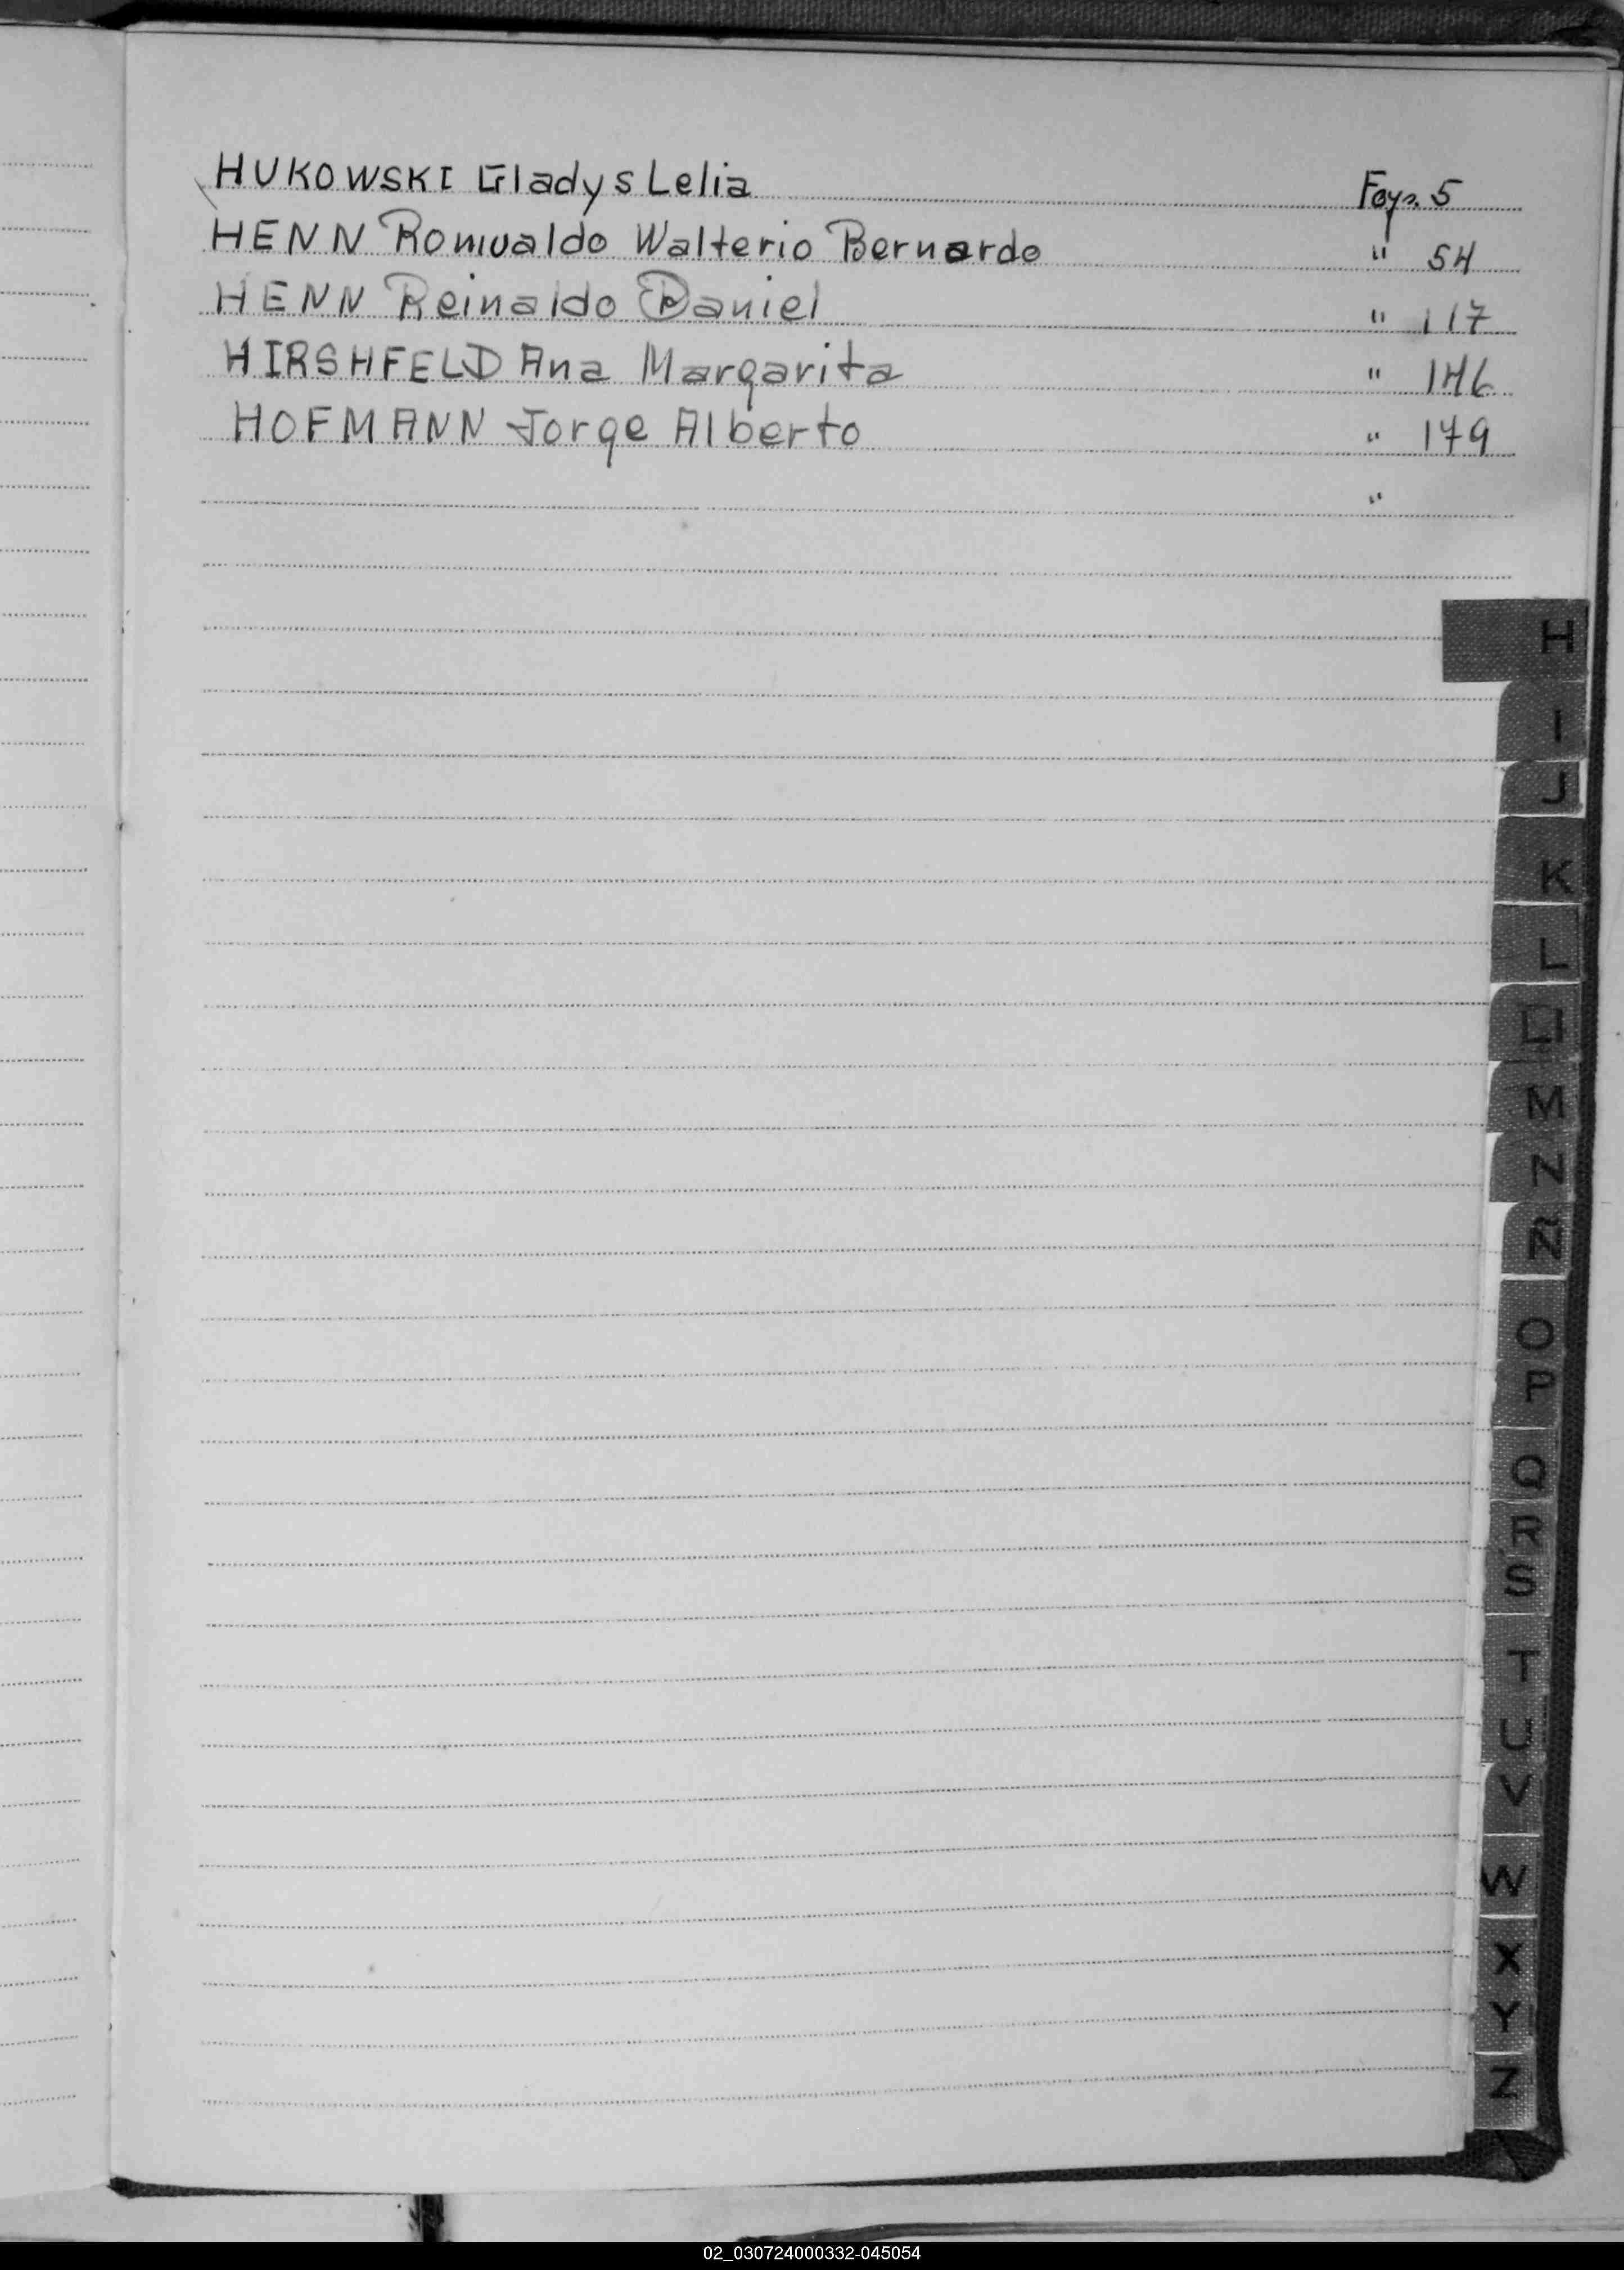 HUKOWSKI Gladys Lelia Fojs. 5
HENN Romualdo Walterio Bernardo " 54
HENN Reinaldo Daniel " 117
HIRSHFELD Ana Margarita " 146
HOFMANN Jorge Alberto " 179
"
H
I
J
K
L
Ll
M
N
Ñ
O
P
Q
R
S
T
U
V
W
X
Y
Z
02_030724000332-045054